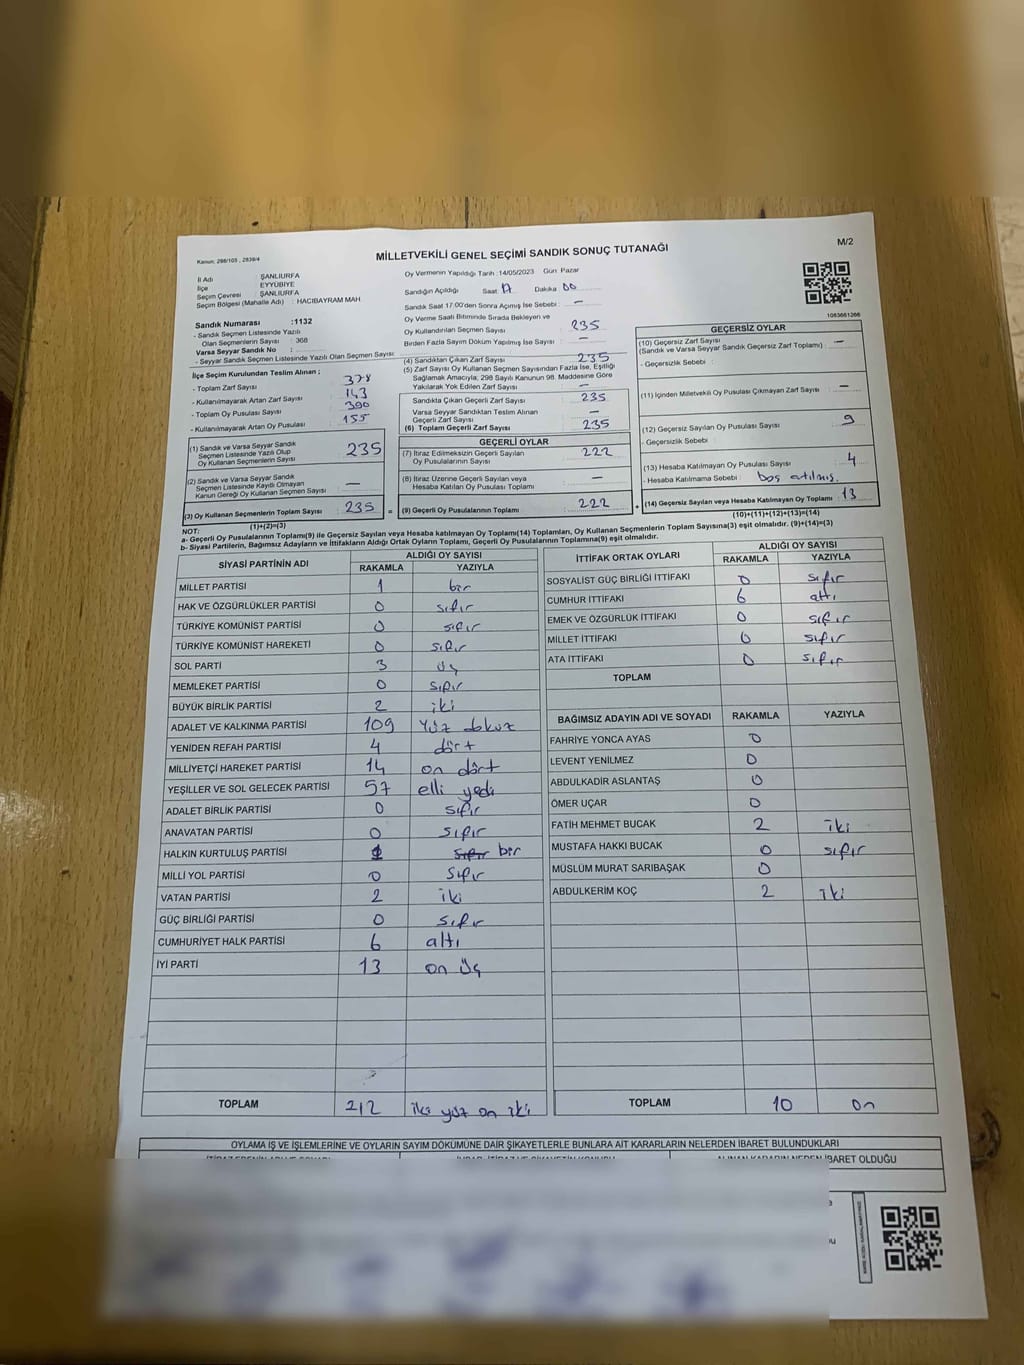 Kanun: 298/105 , 2839/4
MİLLETVEKİLİ GENEL SEÇİMİ SANDIK SONUÇ TUTANAĞI
M/2
İl Adı : ŞANLIURFA
İlçe : EYYÜBİYE
Seçim Çevresi : ŞANLIURFA
Seçim Bölgesi (Mahalle Adı) : HACIBAYRAM MAH.
Sandık Numarası :1132
- Sandık Seçmen Listesinde Yazılı
Olan Seçmenlerin Sayısı : 368
Varsa Seyyar Sandık No :
- Seyyar Sandık Seçmen Listesinde Yazılı Olan Seçmen Sayısı :
İlçe Seçim Kurulundan Teslim Alınan ;
- Toplam Zarf Sayısı 378
- Kullanılmayarak Artan Zarf Sayısı 143
- Toplam Oy Pusulası Sayısı 390
- Kullanılmayarak Artan Oy Pusulası 155
(1) Sandık ve Varsa Seyyar Sandık
Seçmen Listesinde Yazılı Olup
Oy Kullanan Seçmenlerin Sayısı 235
(2) Sandık ve Varsa Seyyar Sandık
Seçmen Listesinde Kayıtlı Olmayan
Kanun Gereği Oy Kullanan Seçmen Sayısı —
(3) Oy Kullanan Seçmenlerin Toplam Sayısı 235
(1)+(2)=(3)
Oy Vermenin Yapıldığı Tarih :14/05/2023 Gün: Pazar
Sandığın Açıldığı Saat: 17 Dakika: 00
Sandık Saat 17.00'den Sonra Açımış İse Sebebi : —
Oy Verme Saati Bitiminde Sırada Bekleyen ve
Oy Kullandırılan Seçmen Sayısı 235
Birden Fazla Sayım Döküm Yapılmış İse Sayısı : —
(4) Sandıktan Çıkan Zarf Sayısı 235
(5) Zarf Sayısı Oy Kullanan Seçmen Sayısından Fazla İse, Eşitliği
Sağlamak Amacıyla, 298 Sayılı Kanunun 98. Maddesine Göre
Yakılarak Yok Edilen Zarf Sayısı —
Sandıkta Çıkan Geçerli Zarf Sayısı 235
Varsa Seyyar Sandıktan Teslim Alınan
Geçerli Zarf Sayısı —
(6) Toplam Geçerli Zarf Sayısı 235
GEÇERLİ OYLAR
(7) İtiraz Edilmeksizin Geçerli Sayılan
Oy Pusulalarının Sayısı 222
(8) İtiraz Üzerine Geçerli Sayılan veya
Hesaba Katılan Oy Pusulası Toplamı —
= (9) Geçerli Oy Pusulalarının Toplamı 222 +
1083661266
GEÇERSİZ OYLAR
(10) Geçersiz Zarf Sayısı
(Sandık ve Varsa Seyyar Sandık Geçersiz Zarf Toplamı) : —
- Geçersizlik Sebebi :
(11) İçinden Milletvekili Oy Pusulası Çıkmayan Zarf Sayısı —
(12) Geçersiz Sayılan Oy Pusulası Sayısı 9
- Geçersizlik Sebebi :
(13) Hesaba Katılmayan Oy Pusulası Sayısı 4
- Hesaba Katılmama Sebebi : boş atılmış.
(14) Geçersiz Sayılan veya Hesaba Katılmayan Oy Toplamı : 13
(10)+(11)+(12)+(13)=(14)
NOT:
a- Geçerli Oy Pusulalarının Toplamı(9) ile Geçersiz Sayılan veya Hesaba katılmayan Oy Toplamı(14) Toplamları, Oy Kullanan Seçmenlerin Toplam Sayısına(3) eşit olmalıdır. (9)+(14)=(3)
b- Siyasi Partilerin, Bağımsız Adayların ve İttifakların Aldığı Ortak Oyların Toplamı, Geçerli Oy Pusulalarının Toplamına(9) eşit olmalıdır.
SİYASİ PARTİNİN ADI ALDIĞI OY SAYISI
RAKAMLA YAZIYLA
MİLLET PARTİSİ 1 bir
HAK VE ÖZGÜRLÜKLER PARTİSİ 0 sıfır
TÜRKİYE KOMÜNİST PARTİSİ 0 sıfır
TÜRKİYE KOMÜNİST HAREKETİ 0 sıfır
SOL PARTİ 3 üç
MEMLEKET PARTİSİ 0 sıfır
BÜYÜK BİRLİK PARTİSİ 2 iki
ADALET VE KALKINMA PARTİSİ 109 Yüz dokuz
YENİDEN REFAH PARTİSİ 4 dört
MİLLİYETÇİ HAREKET PARTİSİ 14 on dört
YEŞİLLER VE SOL GELECEK PARTİSİ 57 elli yedi
ADALET BİRLİK PARTİSİ 0 sıfır
ANAVATAN PARTİSİ 0 sıfır
HALKIN KURTULUŞ PARTİSİ 1 sıfır bir
MİLLİ YOL PARTİSİ 0 sıfır
VATAN PARTİSİ 2 iki
GÜÇ BİRLİĞİ PARTİSİ 0 sıfır
CUMHURİYET HALK PARTİSİ 6 altı
İYİ PARTİ 13 on üç
TOPLAM 212 iki yüz on iki
İTTİFAK ORTAK OYLARI ALDIĞI OY SAYISI
RAKAMLA YAZIYLA
SOSYALİST GÜÇ BİRLİĞİ İTTİFAKI 0 sıfır
CUMHUR İTTİFAKI 6 altı
EMEK VE ÖZGÜRLÜK İTTİFAKI 0 sıfır
MİLLET İTTİFAKI 0 sıfır
ATA İTTİFAKI 0 sıfır
TOPLAM
BAĞIMSIZ ADAYIN ADI VE SOYADI RAKAMLA YAZIYLA
FAHRİYE YONCA AYAS 0
LEVENT YENİLMEZ 0
ABDULKADİR ASLANTAŞ 0
ÖMER UÇAR 0
FATİH MEHMET BUCAK 2 iki
MUSTAFA HAKKI BUCAK 0 sıfır
MÜSLÜM MURAT SARIBAŞAK 0
ABDULKERİM KOÇ 2 iki
TOPLAM 10 on
OYLAMA İŞ VE İŞLEMLERİNE VE OYLARIN SAYIM DÖKÜMÜNE DAİR ŞİKAYETLERLE BUNLARA AİT KARARLARIN NELERDEN İBARET BULUNDUKLARI
ALINAN KARARIN NEDEN İBARET OLDUĞU